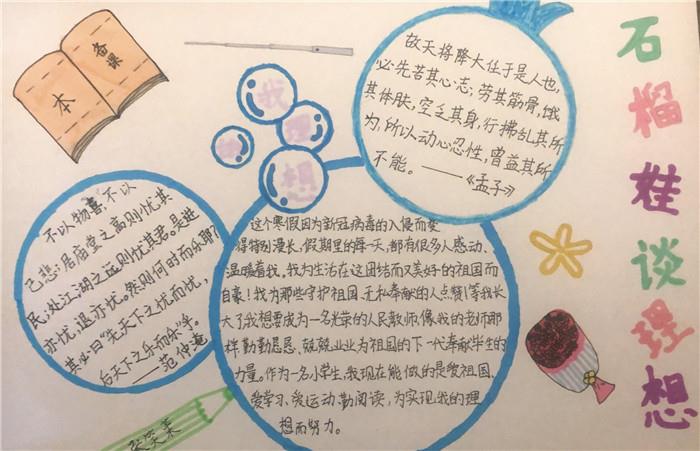 石榴娃谈理想
备课
本
我
的
理
想
故天将降大任于是人也,
必先苦其心志,劳其筋骨,饿
其体肤,空乏其身,行拂乱其所
为,所以动心忍性,曾益其所
不能。——《孟子》
不以物喜,不以
己悲;居庙堂之高则忧其
民;处江湖之远则忧其君。是进
亦忧,退亦忧。然则何时而乐耶?
其必曰"先天下之忧而忧,
后天下之乐而乐"乎。
——范仲淹
这个寒假因为新冠病毒的入侵而变
得特别漫长,假期里的每一天,都有很多人感动、
温暖着我,我为生活在这团结而又美好的祖国而
自豪!我为那些守护祖国、无私奉献的人点赞!等我长
大了,我想要成为一名光荣的人民教师,像我的老师那
样勤勤恳恳、兢兢业业为祖国的下一代奉献毕生的
力量。作为一名小学生,我现在能做的是爱祖国、
爱学习、爱运动、勤阅读,为实现我的理
想而努力。